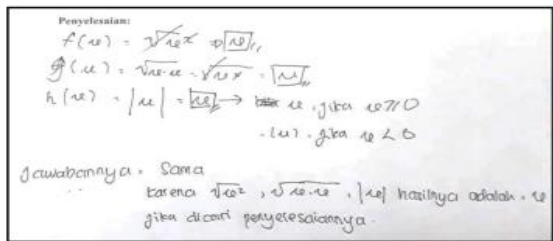 Penyelesaian:
f(x) = √x² ⇒ x
g(x) = √x·x = √x² = x
h(x) = |x| = x → x, jika x ≥ 0
-(x), jika x < 0
Jawabannya = Sama
karena √x², √x·x, |x| hasilnya adalah = x
jika dicari penyelesaiannya.